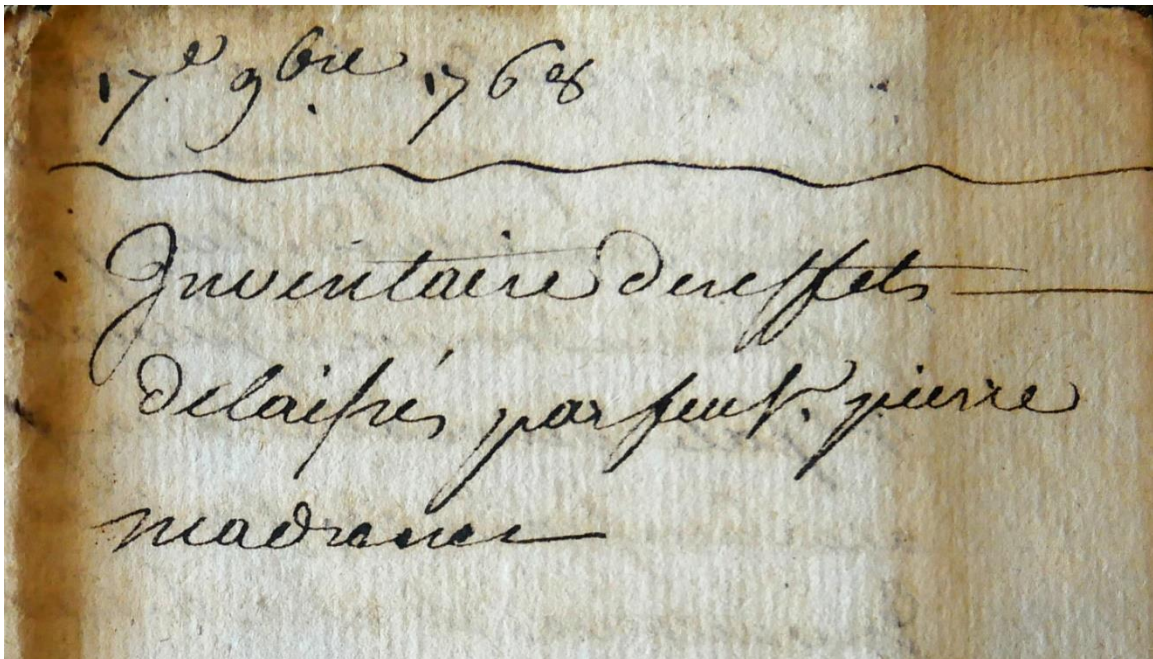 17e 9bre 1768
Inventaire des effets
delaissés par feu Sr. pierre